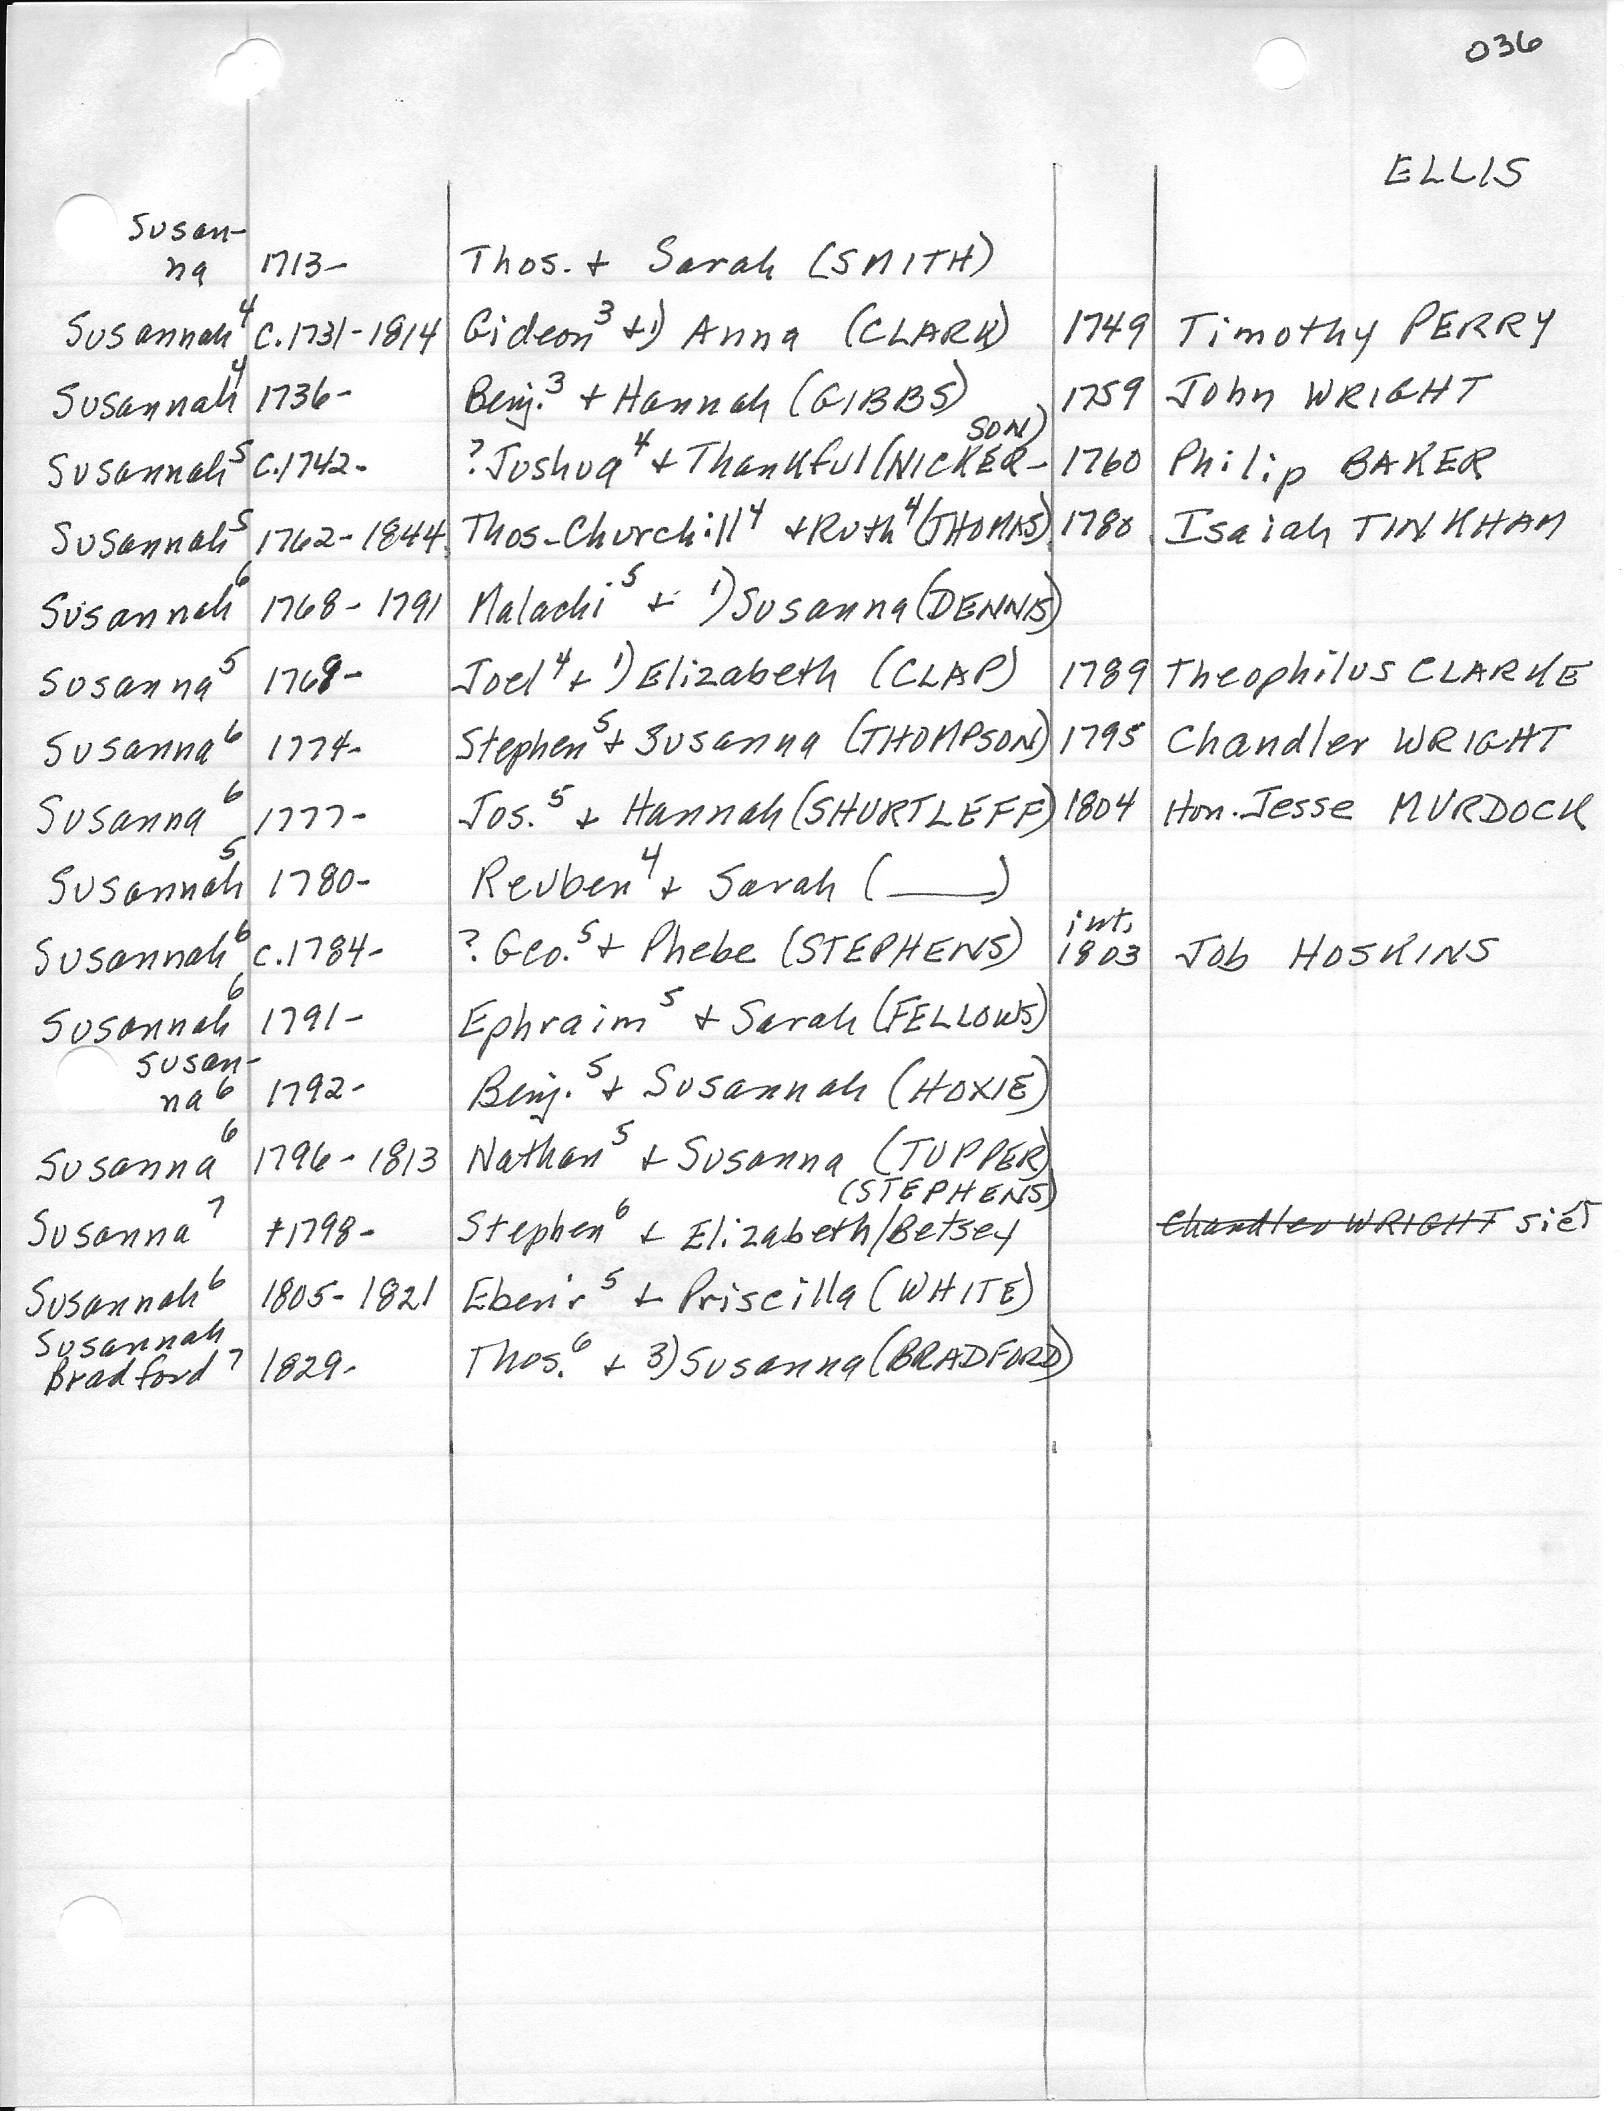 036
ELLIS
Susan-
na 1713- Thos. + Sarah (SMITH)
Susannah⁴ C.1731-1814 Gideon³ +1) Anna (CLARK) 1749 Timothy PERRY
Susannah⁴ 1736- Benj.³ + Hannah (GIBBS) 1759 John WRIGHT
SON)
Susannah⁵ C.1742- ?Joshua⁴ + Thankful (NICKER- 1760 Philip BAKER
Susannah⁵ 1762-1844 Thos-Churchill⁴ + Ruth⁴ (THOMAS) 1780 Isaiah TINKHAM
Susannah⁶ 1768-1791 Malachi⁵ + 1) Susanna (DENNIS)
Susanna⁵ 1769- Joel⁴ + 1) Elizabeth (CLAP) 1789 Theophilus CLARKE
Susanna⁶ 1774- Stephen⁵ + Susanna (THOMPSON) 1795 Chandler WRIGHT
Susanna⁶ 1777- Jos.⁵ + Hannah (SHURTLEFF) 1804 Hon. Jesse MURDOCK
Susannah⁵ 1780- Reuben⁴ + Sarah (____)
int.
Susannah⁶ c.1784- ? Geo.⁵ + Phebe (STEPHENS) 1803 Job HOSKINS
Susannah⁶ 1791- Ephraim⁵ + Sarah (FELLOWS)
Susan-
na⁶ 1792- Benj.⁵ + Susannah (HOXIE)
Susanna⁶ 1796-1813 Nathan⁵ + Susanna (TUPPER)
(STEPHENS)
Susanna⁷ +1798- Stephen⁶ + Elizabeth/Betsey Chandler WRIGHT
Susannah⁶ 1805-1821 Eben'r⁵ + Priscilla (WHITE)
Susannah
Bradford⁷ 1829- Thos.⁶ + 3) Susanna (BRADFORD)